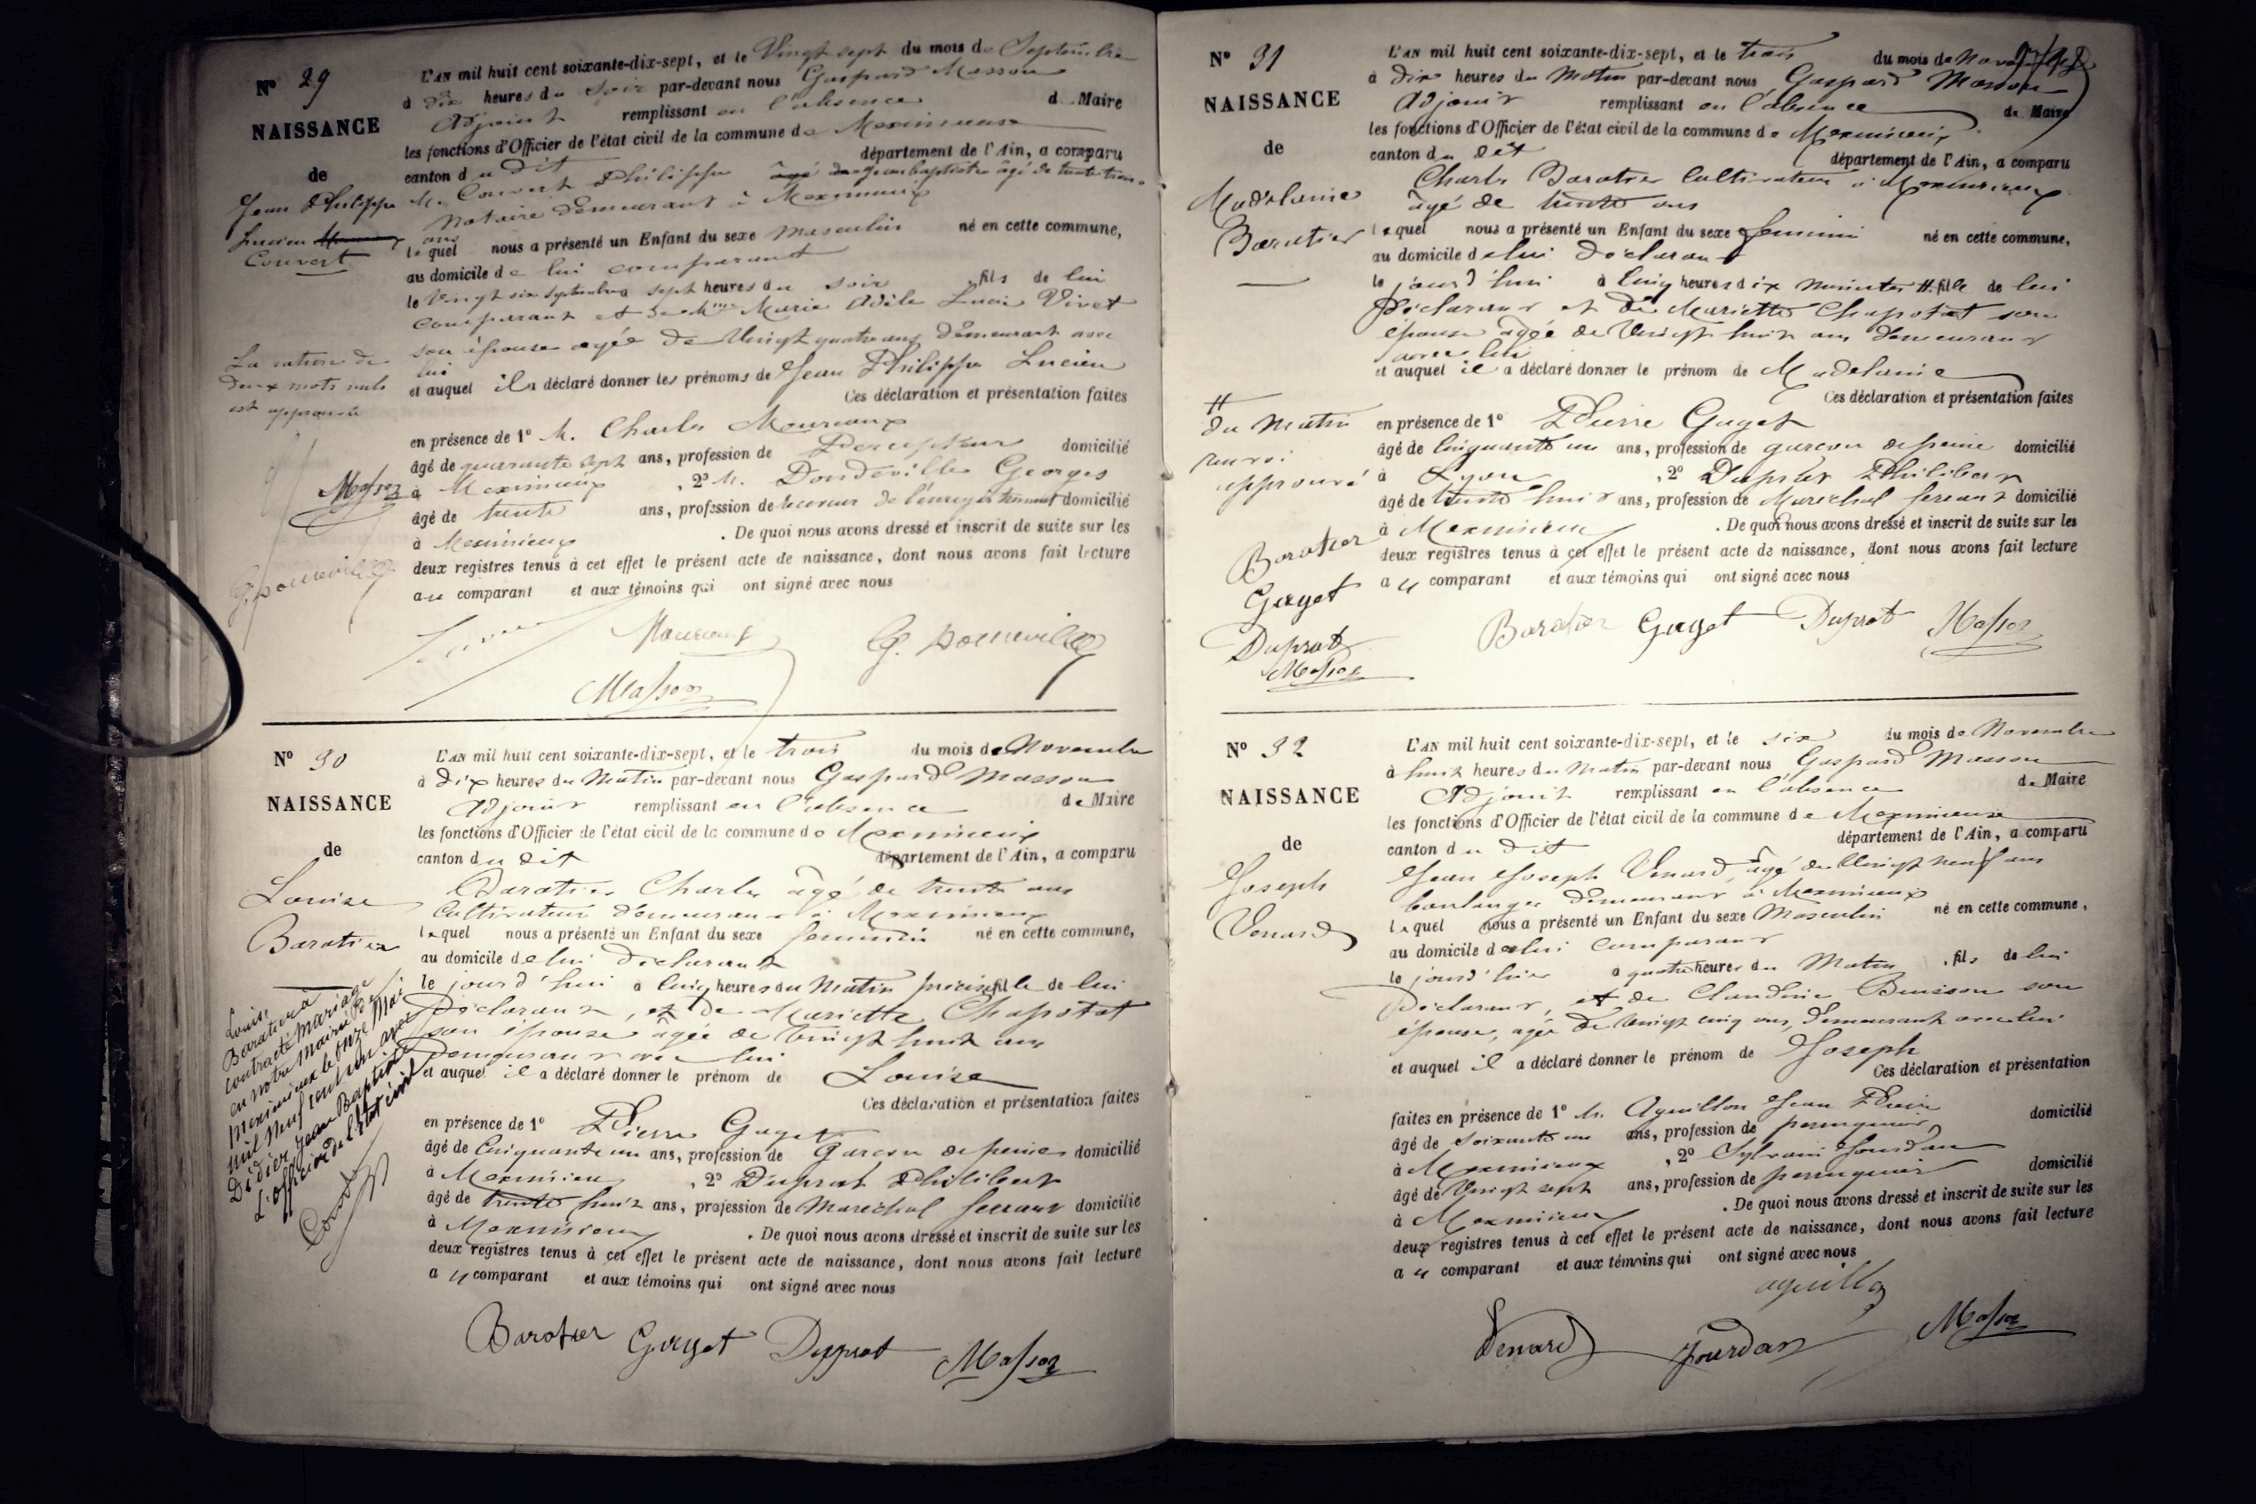 Nº 29
NAISSANCE
de
Jean Philippe
Lucien
Couvert
La rature de
deux mots nuls
est approuvée
Masson
G. Dondeville
L'AN mil huit cent soixante-dix-sept, et le Vingt sept du mois de Septembre
à dix heures du soir par-devant nous Gaspard Masson
Adjoint remplissant en l'absence de Maire
les fonctions d'Officier de l'état civil de la commune de Meximieux
canton du dit département de l'Ain, a comparu
M. Couvert Philippe Jean baptiste âgé de trente trois
ans Notaire demeurant à Meximieux
lequel nous a présenté un Enfant du sexe masculin né en cette commune,
au domicile de lui comparant
le Vingt six septembre à sept heures du soir fils de lui
comparant et de Mme Marie Adèle Lucie Vivet
son épouse agée de Vingt quatre ans demeurant avec
lui
et auquel il a déclaré donner les prénoms de Jean Philippe Lucien
Ces déclaration et présentation faites
en présence de 1º M. Charles Moureaux
âgé de quarante sept ans, profession de Percepteur domicilié
à Meximieux, 2º M. Dondeville Georges
âgé de trente ans, profession de receveur de l'enregistrement domicilié
à Meximieux. De quoi nous avons dressé et inscrit de suite sur les
deux registres tenus à cet effet le présent acte de naissance, dont nous avons fait lecture
au comparant et aux témoins qui ont signé avec nous
Moureaux G. Dondeville
Masson
Nº 30
NAISSANCE
de
Louise
Baratier
Louise
Baratier à
contracté mariage
en notre mairie de
Meximieux le onze Mai
mil neuf cent un avec
Didier Jean Baptiste
L'officier de l'état civil
L'AN mil huit cent soixante-dix-sept, et le trois du mois de Novembre
à dix heures du Matin par-devant nous Gaspard Masson
Adjoint remplissant en l'absence de Maire
les fonctions d'Officier de l'état civil de la commune de Meximieux
canton du dit département de l'Ain, a comparu
Baratier Charles âgé de trente ans
Cultivateur demeurant à Meximieux
lequel nous a présenté un Enfant du sexe feminin né en cette commune,
au domicile de lui déclarant
le jourd'hui à cinq heures du Matin précise fille de lui
Déclarant, et de Mariette Chapotat
son épouse âgée de Vingt huit ans
Demeurant avec lui
et auquel il a déclaré donner le prénom de Louise
Ces déclaration et présentation faites
en présence de 1º Pierre Gaget
âgé de Cinquante un ans, profession de Garçon de peine domicilié
à Meximieux, 2º Duprat Philibert
âgé de trente huit ans, profession de Marechal ferrant domicilié
à Meximieux. De quoi nous avons dressé et inscrit de suite sur les
deux registres tenus à cet effet le présent acte de naissance, dont nous avons fait lecture
au comparant et aux témoins qui ont signé avec nous
Baratier Gaget Duprat Masson
Nº 31
NAISSANCE
de
Madelaine
Baratier
H
du Matin
renvoi
approuvé
Baratier
Gaget
Duprat
Masson
L'AN mil huit cent soixante-dix-sept, et le trois du mois de Novembre
à dix heures du Matin par-devant nous Gaspard Masson
Adjoint remplissant en l'absence de Maire
les fonctions d'Officier de l'état civil de la commune de Meximieux
canton du dit département de l'Ain, a comparu
Charles Baratier Cultivateur à Meximieux
âgé de trente ans
lequel nous a présenté un Enfant du sexe feminin né en cette commune,
au domicile de lui déclarant
le jourd'hui à cinq heures dix minutes H fille de lui
Déclarant et de Mariette Chapotat son
épouse âgée de Vingt huit ans demeurant
avec lui
et auquel il a déclaré donner le prénom de Madelaine
Ces déclaration et présentation faites
en présence de 1º Pierre Gaget
âgé de Cinquante un ans, profession de garçon de peine domicilié
à Lyon, 2º Duprat Philibert
âgé de trente huit ans, profession de Marechal ferrant domicilié
à Meximieux. De quoi nous avons dressé et inscrit de suite sur les
deux registres tenus à cet effet le présent acte de naissance, dont nous avons fait lecture
au comparant et aux témoins qui ont signé avec nous
Baratier Gaget Duprat Masson
Nº 32
NAISSANCE
de
Joseph
Venard
L'AN mil huit cent soixante-dix-sept, et le six du mois de Novembre
à huit heures du Matin par-devant nous Gaspard Masson
Adjoint remplissant en l'absence de Maire
les fonctions d'Officier de l'état civil de la commune de Meximieux
canton du dit département de l'Ain, a comparu
Jean Joseph Venard, âgé de Vingt neuf ans
boulanger demeurant à Meximieux
lequel nous a présenté un Enfant du sexe Masculin né en cette commune,
au domicile de lui comparant
le jourd'hui à quatre heures du Matin, fils de lui
Déclarant, et de Claudine Buisson son
épouse, agée de Vingt cinq ans, demeurant avec lui
et auquel il a déclaré donner le prénom de Joseph
Ces déclaration et présentation
faites en présence de 1º M. Aguillon Jean Pierre
âgé de soixante un ans, profession de perruquier domicilié
à Meximieux, 2º Sylvain Jourdan
âgé de Vingt sept ans, profession de perruquier domicilié
à Meximieux. De quoi nous avons dressé et inscrit de suite sur les
deux registres tenus à cet effet le présent acte de naissance, dont nous avons fait lecture
au comparant et aux témoins qui ont signé avec nous
aguillon
Venard Jourdan Masson